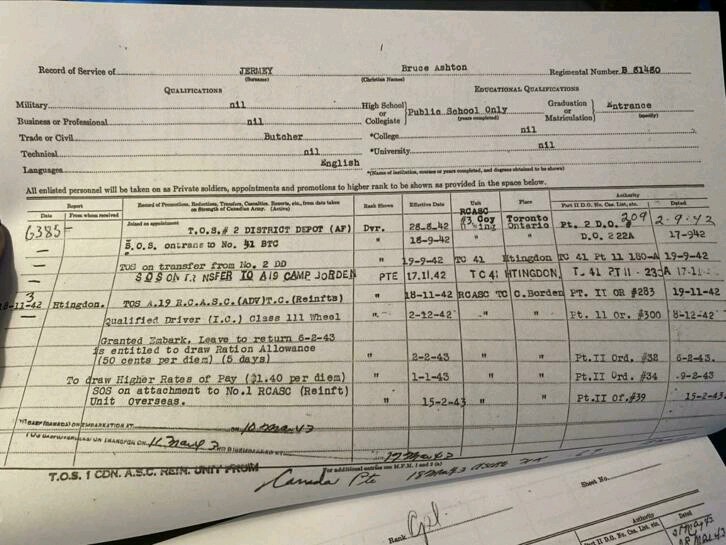 1
Record of Service of JERMEY Bruce Ashton Regimental Number B 81480
(Surname) (Christian Names)
QUALIFICATIONS EDUCATIONAL QUALIFICATIONS
Military nil High School or Collegiate Public School Only (years completed) Graduation or Matriculation Entrance (specify)
Business or Professional nil
Trade or Civil Butcher *College nil
Technical nil *University nil
Languages English *(Name of institution, courses or years completed, and degrees obtained to be shown)
All enlisted personnel will be taken on as Private soldiers, appointments and promotions to higher rank to be shown as provided in the space below.
Report Record of Promotions, Reductions, Transfers, Casualties, Reports, etc., from date taken on Strength of Canadian Army. (Active) Rank Shown Effective Date Unit Place Authority
Date From whom received Part II D.O. No. Cas. List, etc. Dated
6385 Joined on appointment T.O.S.# 2 DISTRICT DEPOT (AF) Dvr. 28-8-42 RCASC #3 Coy Wing Toronto Ontario Pt. 2 D.O. 209 2-9-42
— S.O.S. on trans to No. 41 BTC " 18-9-42 D.O. 222A 17-942
— TOS on transfer from No. 2 DD " 19-9-42 TC 41 Htingdon TC 41 Pt 11 180-A 19-9-42
— SOS ON TRANSFER TO A19 CAMP JORDEN PTE 17.11.42 TC 41 HTINGDON PT 11 17-11
3
18-11-42 Htingdon. TOS A.19 R.C.A.S.C.(ADV)T.C.(Reinfts) " 18-11-42 RCASC TC C.Borden PT. II OR #283 19-11-42
— Qualified Driver (I.C.) Class 111 Wheel " 2-12-42 " " Pt. 11 Or. #300 8-12-42
Granted Embark. Leave to return 6-2-43
is entitled to draw Ration Allowance
(50 cents per diem) (5 days) " 2-2-43 " " Pt.II Ord. #32 6-2-43.
To draw Higher Rates of Pay ($1.40 per diem) " 1-1-43 " " Pt.II Ord. #34 9-2-43
SOS on attachment to No.1 RCASC (Reinft)
Unit Overseas. " 15-2-43 " " Pt.II Of.#39 15-2-43
EMBARKATION AT ON 10 Mar 43
ON 11 Mar 43 AND DISEMBARKED AT
17 Mar 43
T.O.S. 1 CDN. A.S.C. REIN. UNIT FROM
For additional entries use M.F.M. 1 and 2 (a)
Canada Pte 18 Mar 43
Sheet No.
Rank Cpl.
Authority
Part II D.O. No. Cas. List, etc. Dated